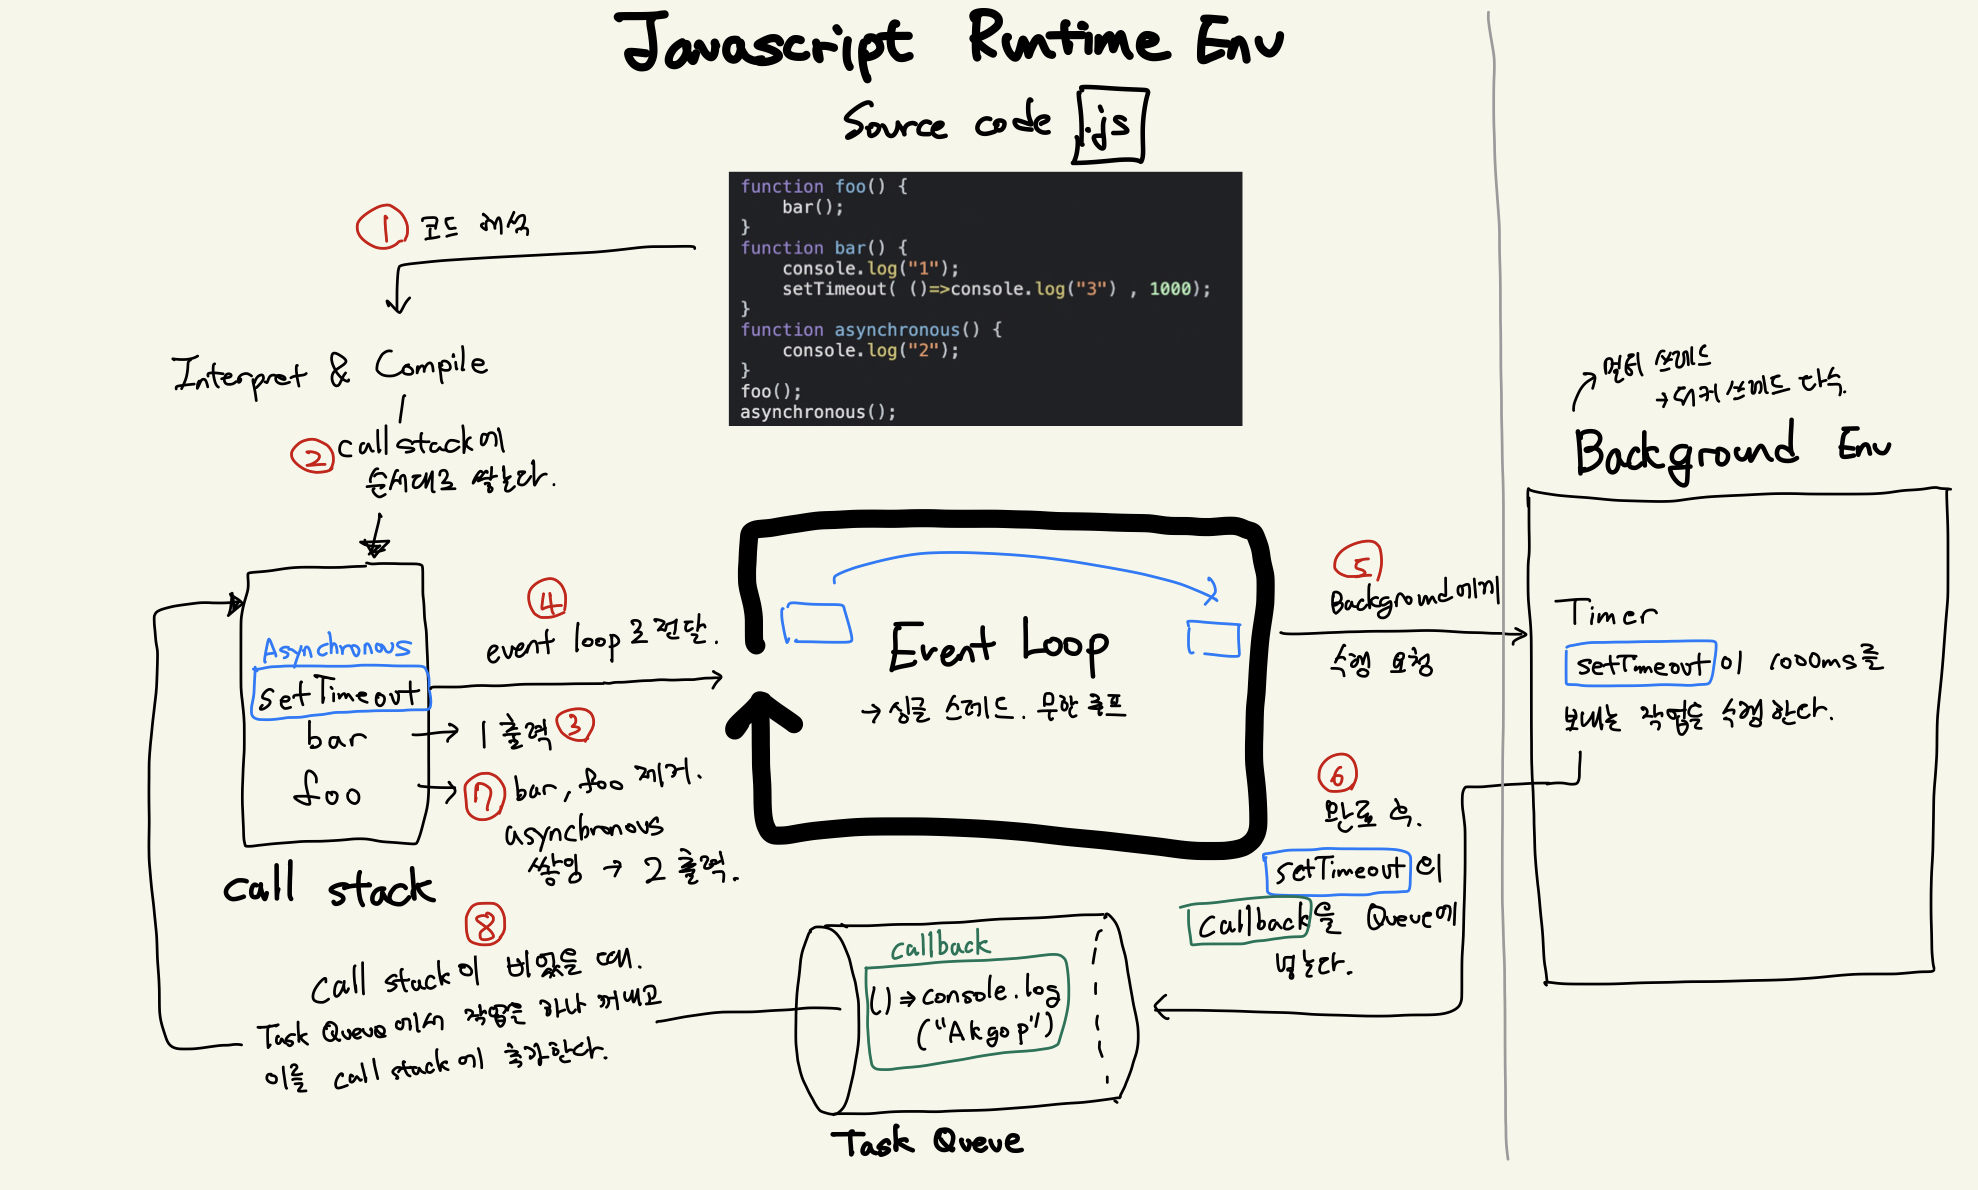 Javascript Runtime Env
Source code .js
function foo() {
bar();
}
function bar() {
console.log("1");
setTimeout( ()=>console.log("3") , 1000);
}
function asynchronous() {
console.log("2");
}
foo();
asynchronous();
1 코드 해석
Interpret & Compile
2 call stack에
순서대로 쌓는다.
Asynchronous
setTimeout
bar
foo
call stack
1 출력 3
7 bar, foo 제거.
asynchronous
쌓임 → 2 출력.
4
event loop로 전달.
Event Loop
→ 싱글 스레드. 무한 루프
5
Background에게
수행 요청
멀티 쓰레드
→ 워커 쓰레드 다수.
Background Env
Timer
setTimeout이 1000ms를
보내는 작업을 수행한다.
6
완료 후.
setTimeout의
Callback을 Queue에
넣는다.
callback
() => console.log
("Akgop")
Task Queue
8
Call stack이 비었을 때.
Task Queue에서 작업을 하나 꺼내고
이를 call stack에 추가한다.